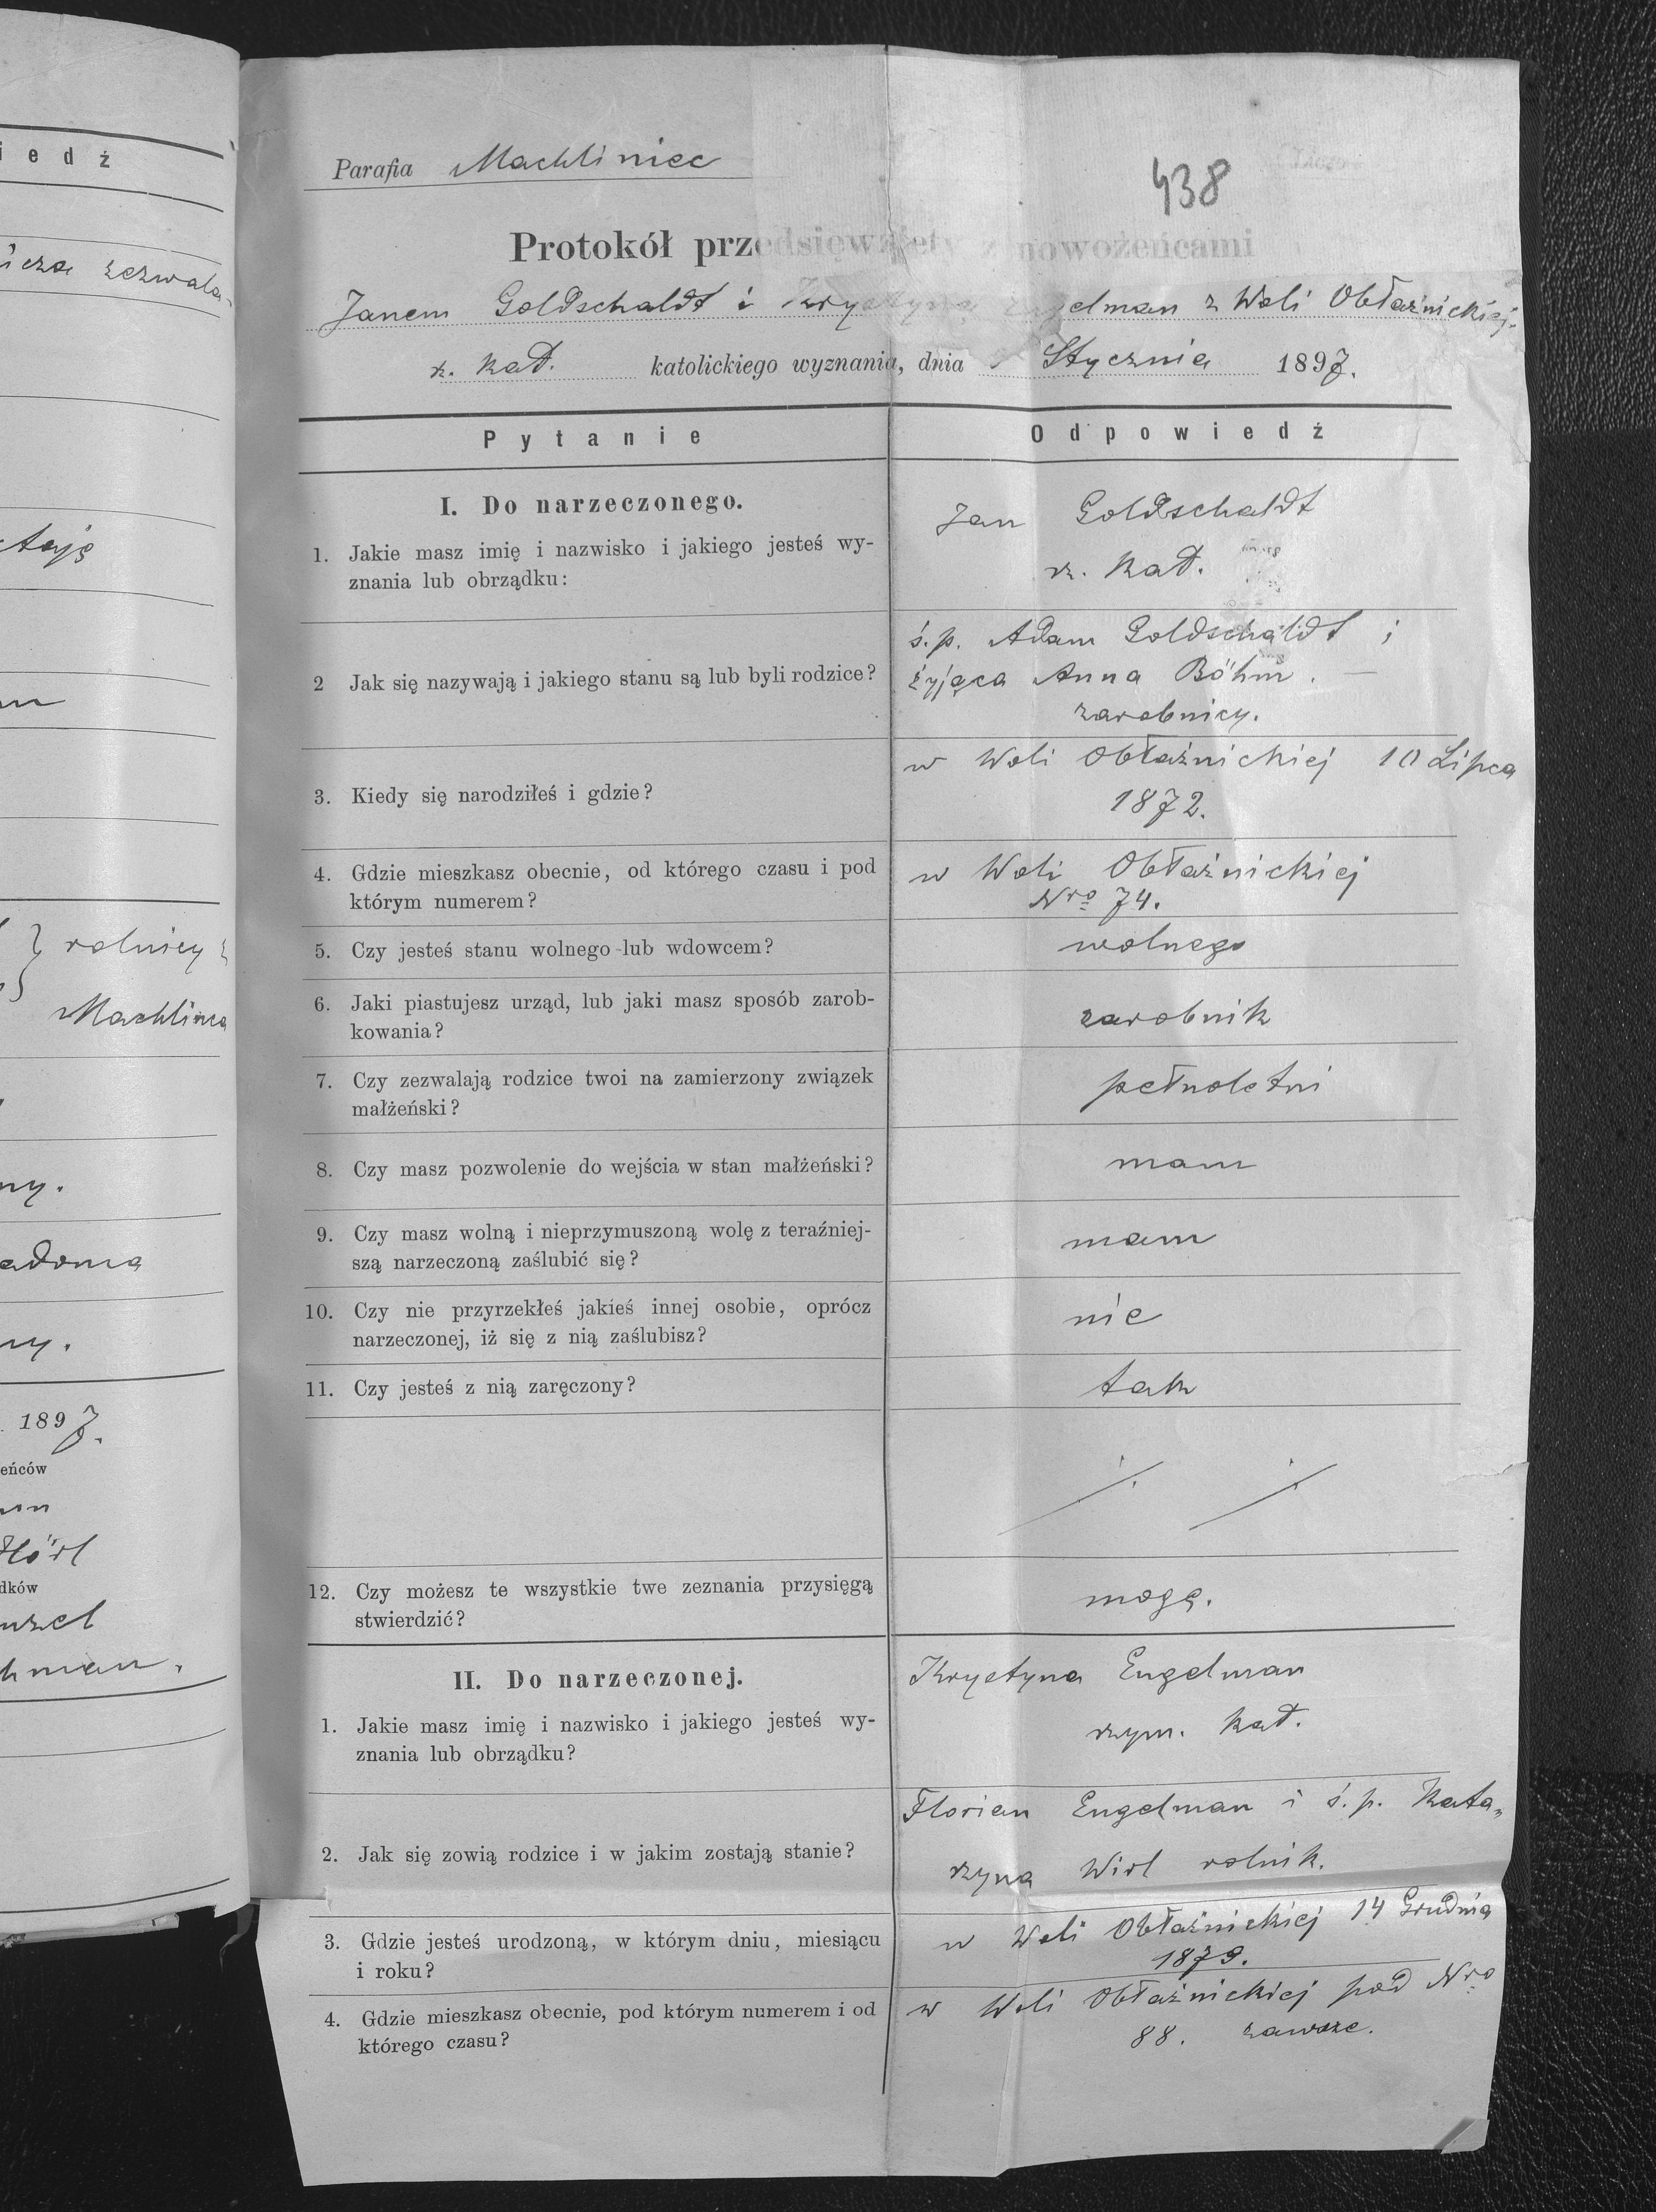 iedż
icza zezwala
taję
rolnicy z
Machlińca
ny.
adoma
ny.
1897.
eńców
Hörl
dków
nzel
hman.
Parafia Machliniec
438
Protokół przedsięwzięty z nowożeńcami
Janem Goldschaldt i Krystyną Engelman z Woli Obłaźnickiej
r. kat. katolickiego wyznania, dnia Stycznia 1897.
Pytanie
Odpowiedź
I. Do narzeczonego.
1. Jakie masz imię i nazwisko i jakiego jesteś wy-
znania lub obrządku:
Jan Goldschaldt
r. kat.
2 Jak się nazywają i jakiego stanu są lub byli rodzice?
ś.p. Adam Goldschaldt i
żyjąca Anna Böhm. —
zarobnicy.
3. Kiedy się narodziłeś i gdzie?
w Woli Obłaźnickiej 10 Lipca
1872.
4. Gdzie mieszkasz obecnie, od którego czasu i pod
którym numerem?
w Woli Obłaźnickiej
Nro 74.
5. Czy jesteś stanu wolnego lub wdowcem?
wolnego
6. Jaki piastujesz urząd, lub jaki masz sposób zarob-
kowania?
zarobnik
7. Czy zezwalają rodzice twoi na zamierzony związek
małżeński?
pełnoletni
8. Czy masz pozwolenie do wejścia w stan małżeński?
mam
9. Czy masz wolną i nieprzymuszoną wolę z teraźniej-
szą narzeczoną zaślubić się?
mam
10. Czy nie przyrzekłeś jakieś innej osobie, oprócz
narzeczonej, iż się z nią zaślubisz?
nie
11. Czy jesteś z nią zaręczony?
tak
12. Czy możesz te wszystkie twe zeznania przysięgą
stwierdzić?
mogę.
II. Do narzeczonej.
1. Jakie masz imię i nazwisko i jakiego jesteś wy-
znania lub obrządku?
Krystyna Engelman
rzym. kat.
2. Jak się zowią rodzice i w jakim zostają stanie?
Florian Engelman i ś.p. Kata„
rzyna Wirl rolnik.
3. Gdzie jesteś urodzoną, w którym dniu, miesiącu
i roku?
w Woli Obłaźnickiej 14 Grudnia
1879.
4. Gdzie mieszkasz obecnie, pod którym numerem i od
którego czasu?
w Woli Obłaźnickiej pod Nro
88. zawsze.